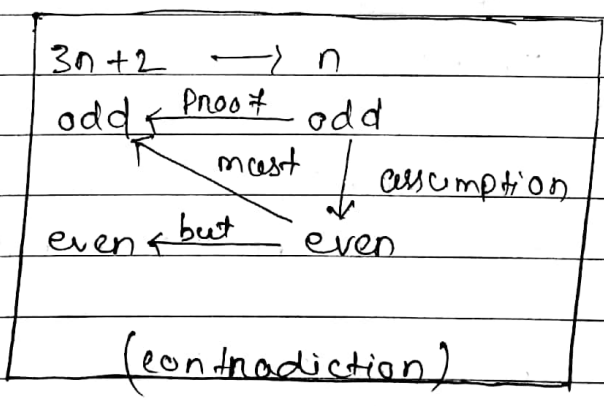 3n+2 → n
odd ← proof odd
must assumption
even ← but even
(contradiction)